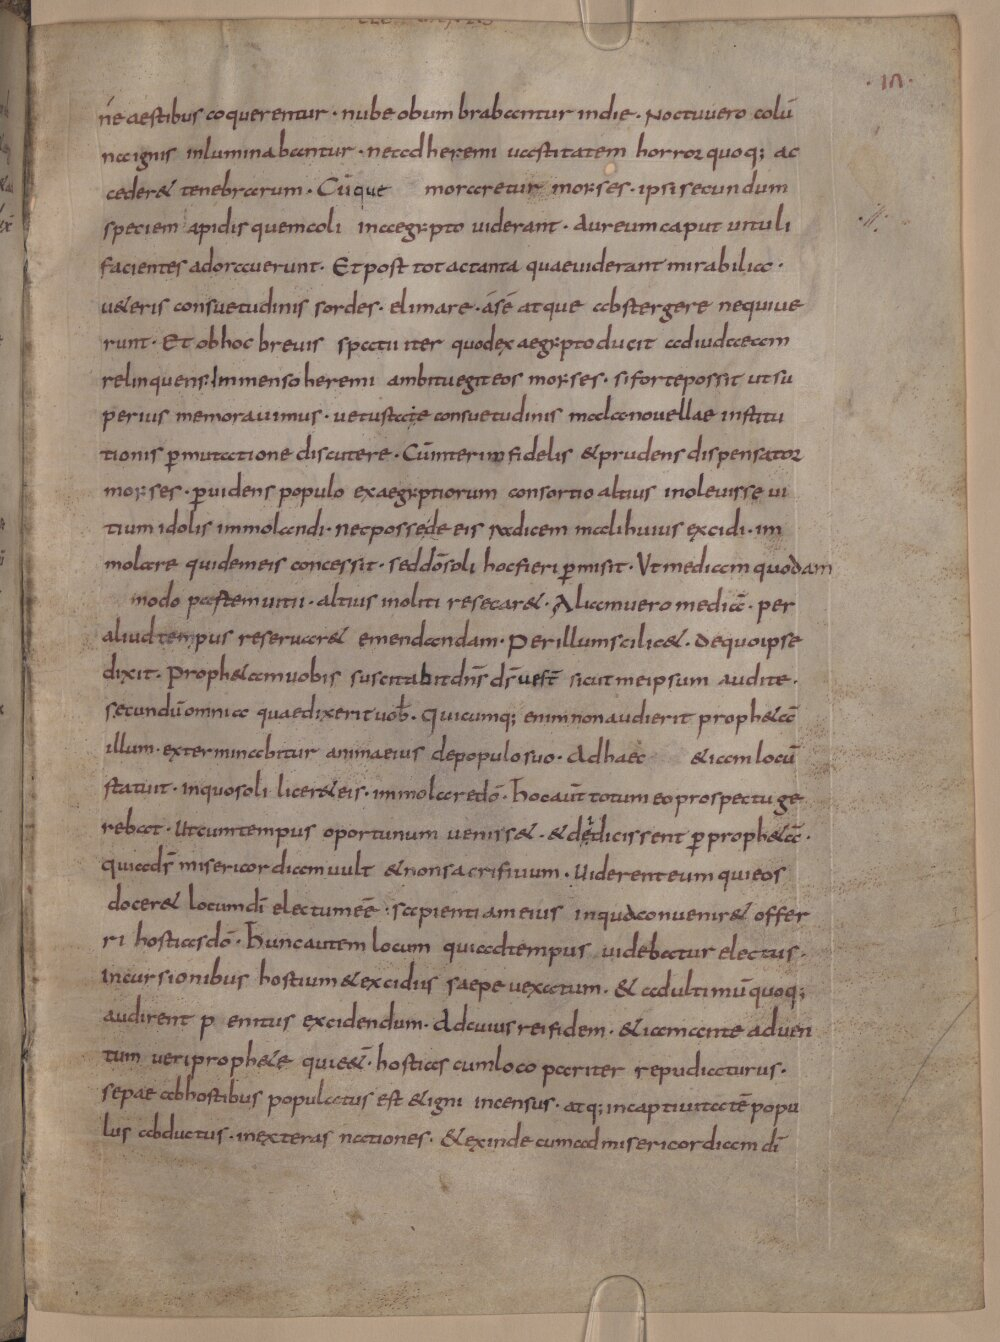 ·IN·
ne aestibus coquerentur · nube obumbrabantur indie · Noctuuero colū
na ignis inluminabantur · neadheremi uastitatem horror quoq; ac
ceder& tenebrarum · Cūque moraretur moyses · ipsi secundum
speciem apidis quemcoli inaegypto uiderant · Aureum caput uituli
facientes adorauerunt · Et post tot ac tanta quaeuiderant mirabilia ·
u&eris consuetudinis sordes · elimare · asē atque abstergere nequiue
runt · Et obhoc breuis spatii iter quodex aegypto ducit adiudaeam
relinquens · Immenso heremi ambitu egit eos moyses · siforte possit utsu
perius memorauimus · uetustae consuetudinis mala nouellae institu
tionis p̄mutatione discutere · Cūinterim fidelis & prudens dispensator
moyses · p̄uidens populo exaegyptiorum consortio altius inoleuisse ui
tium idolis immolandi · nec posse de eis radicem mali huius excidi · im
molare quidem eis concessit · sed dō soli hocfieri p̄misit · Ut mediam quodam
modo pastem uitii · altius inoliti resecar& · Aliam uero mediā · per
aliud tempus reseruar& emendandam · Per illum scilic& · de quo ipse
dixit · Proph&am uobis suscitabit dn̄s ds̄ uest̄ sicut meipsum audite ·
secundū omnia quae dixerit uob̄ · Quicumq; enim non audierit proph&ā
illum · exterminabitur anima eius de populo suo · Adhaec &iam locū
statuit · inquo soli licer& eis · immolare dō · Hoc aūt totum eo prospectu ge
rebat · Ut cum tempus oportunum ueniss& · & dedicissent p̄ proph&ā ·
quia ds̄ misericordiam uult & non sacrificium · Uiderent eum qui eos
docer& locum dī electum eē · sapientiam eius inqua conuenir& offer
ri hostias dō · Hunc autem locum qui ad tempus uidebatur electus ·
incursionibus hostium & excidiis saepe uexatum · & ad ultimū quoq;
audirent p enitus excidendum · Ad cuius rei fidem · &iam ante aduen
tum ueri proph&e qui eū · hostias cum loco pariter repudiaturus ·
sepae ab hostibus populatus est & igni incensus · atq; in captiuitatē popu
lus abductus · in exteras nationes · & exinde cum ad misericordiam dī